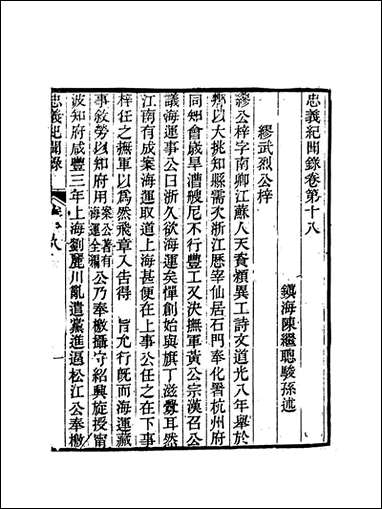 忠義紀聞錄卷第十八
鎮海陳繼聰駿孫述
繆武烈公梓
繆公梓字南卿江蘇人天資穎異工詩文道光八年舉於
鄉以大挑知縣需次浙江歷宰仙居石門奉化晉杭州府
同知會歲旱漕艘尼不行豐工又決撫軍黃公宗漢召公
議海運事公曰浙久欲海運矣憚創始與旗丁滋釁耳然
江南有成案海運取道上海甚便在上事公任之在下事
梓任之撫軍以為然飛章入告得 旨允行旣而海運蕆
事敘勞以知府用案公著有海運全編公乃奉檄攝守紹興旋授甯
波知府咸豐三年上海劉麗川亂遣黨進逼松江公奉檄
忠義紀聞錄
卷十八
一